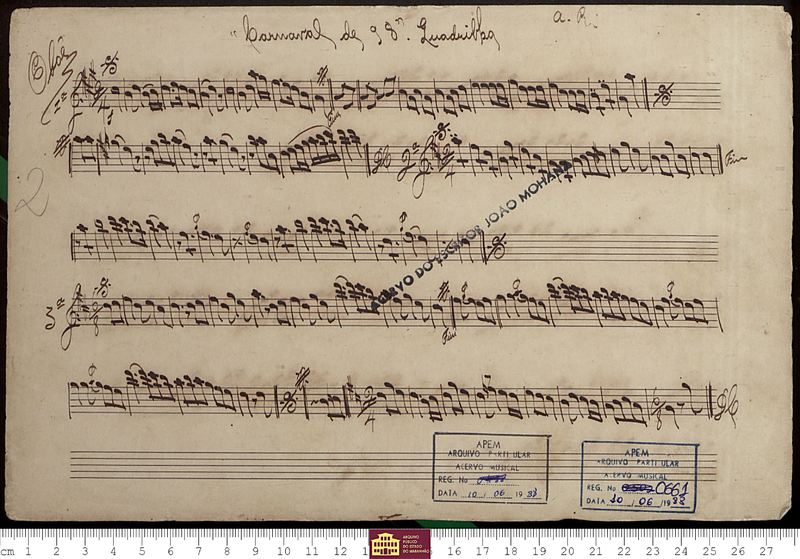 "Carnaval de 98". Quadrilha
a. R.
Oboé
1ª
Fim
DC 2ª
2/4
Fim
2
3ª
6/8
Fim
2/4
6/8
DC
ACERVO DO PROFESSOR JOÃO MOHANA
APEM
ARQUIVO PARTICULAR
ACERVO MUSICAL
REG. No
DATA 10 / 06 / 1988
APEM
ARQUIVO PARTICULAR
ACERVO MUSICAL
REG. No 0661
DATA 10 / 06 / 1988
cm 1 2 3 4 5 6 7 8 9 10 11 12 16 17 18 19 20 21 22 23 24 25 26 27
ARQUIVO
PÚBLICO
DO ESTADO
DO MARANHÃO